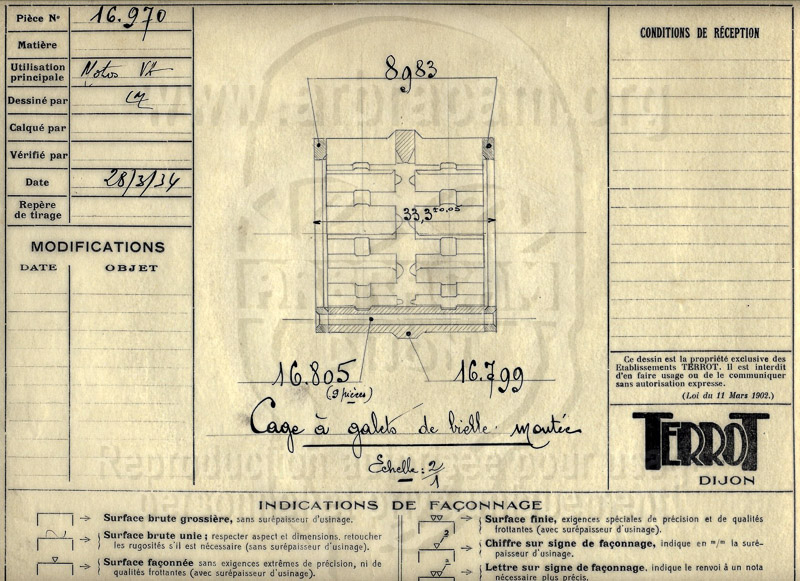 Pièce N° 16.970
Matière
Utilisation principale Motos VA
Dessiné par
Calqué par
Vérifié par
Date 28/3/34
Repère de tirage
MODIFICATIONS
DATE OBJET
8983
33,3 ±0,05
16.805
(9 pièces)
16.799
Cage à galets de bielle montée
Echelle: 2/1
CONDITIONS DE RÉCEPTION
Ce dessin est la propriété exclusive des
Etablissements TERROT. Il est interdit
d'en faire usage ou de le communiquer
sans autorisation expresse.
(Loi du 11 Mars 1902.)
TERROT
DIJON
INDICATIONS DE FAÇONNAGE
Surface brute grossière, sans surépaisseur d'usinage.
Surface brute unie; respecter aspect et dimensions, retoucher
les rugosités s'il est nécessaire (sans surépaisseur d'usinage).
Surface façonnée sans exigences extrêmes de précision, ni de
qualités frottantes (avec surépaisseur d'usinage).
Surface finie, exigences spéciales de précision et de qualités
frottantes (avec surépaisseur d'usinage).
Chiffre sur signe de façonnage, indique en m/m la suré-
paisseur d'usinage.
Lettre sur signe de façonnage, indique le renvoi à un nota
nécessaire plus précis.
www.arbracam.org